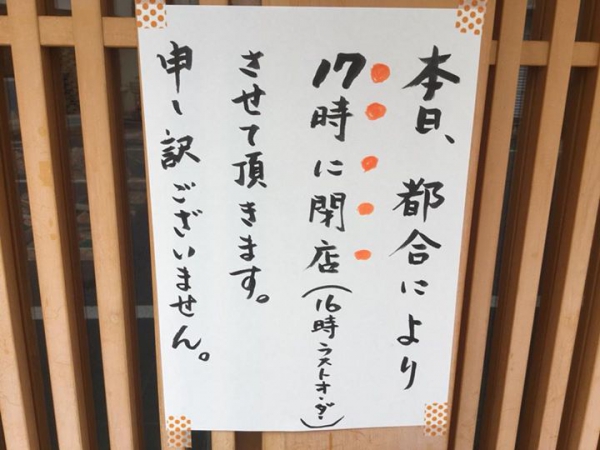 本日、都合により
17時に閉店(16時ラストオーダー)
させて頂きます。
申し訳ございません。